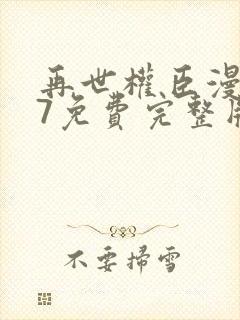 再世權臣漫
7免費完整
不要掃雪